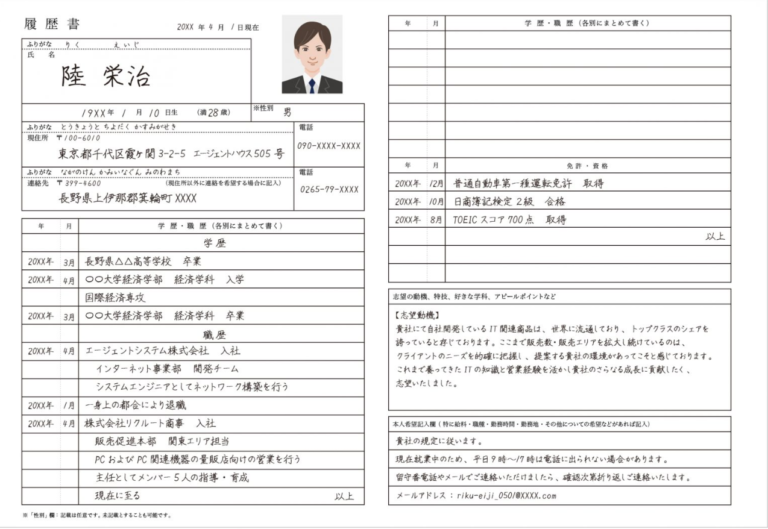 履歴書
20XX 年 4 月 1 日現在
ふりがな りく えいじ
氏 名
陸 栄治
19XX 年 1 月 10 日生 (満 28 歳)
※性別 男
ふりがな とうきょうと ちよだく かすみがせき
現住所 〒100-6010
東京都千代田区霞ヶ関 3-2-5 エージェントハウス 505 号
電話
090-XXXX-XXXX
ふりがな ながのけん かみいなぐん みのわまち
連絡先 〒399-4600 (現住所以外に連絡を希望する場合に記入)
長野県上伊那郡箕輪町 XXXX
電話
0265-79-XXXX
年 月 学歴・職歴(各別にまとめて書く)
学歴
20XX年 3月 長野県△△高等学校 卒業
20XX年 4月 〇〇大学経済学部 経済学科 入学
国際経済専攻
20XX年 3月 〇〇大学経済学部 経済学科 卒業
職歴
20XX年 4月 エージェントシステム株式会社 入社
インターネット事業部 開発チーム
システムエンジニアとしてネットワーク構築を行う
20XX年 1月 一身上の都合により退職
20XX年 4月 株式会社リクルート商事 入社
販売促進本部 関東エリア担当
PC および PC 関連機器の量販店向けの営業を行う
主任としてメンバー 5 人の指導・育成
現在に至る 以上
※「性別」欄:記載は任意です。未記載とすることも可能です。
年 月 学歴・職歴(各別にまとめて書く)
年 月 免許・資格
20XX年 12月 普通自動車第一種運転免許 取得
20XX年 10月 日商簿記検定 2級 合格
20XX年 8月 TOEIC スコア 700 点 取得
以上
志望の動機、特技、好きな学科、アピールポイントなど
【志望動機】
貴社にて自社開発している IT 関連商品は、世界に流通しており、トップクラスのシェアを
誇っていると存じております。ここまで販売数・販売エリアを拡大し続けているのは、
クライアントのニーズを的確に把握し、提案する貴社の環境があってこそと感じております。
これまで養ってきた IT の知識と営業経験を活かし貴社のさらなる成長に貢献したく、
志望いたしました。
本人希望記入欄(特に給料・職種・勤務時間・勤務地・その他についての希望などがあれば記入)
貴社の規定に従います。
現在就業中のため、平日 9 時〜17 時は電話に出られない場合があります。
留守番電話やメールでご連絡いただけましたら、確認次第折り返しご連絡いたします。
メールアドレス:riku-eiji_0501@XXXX.com